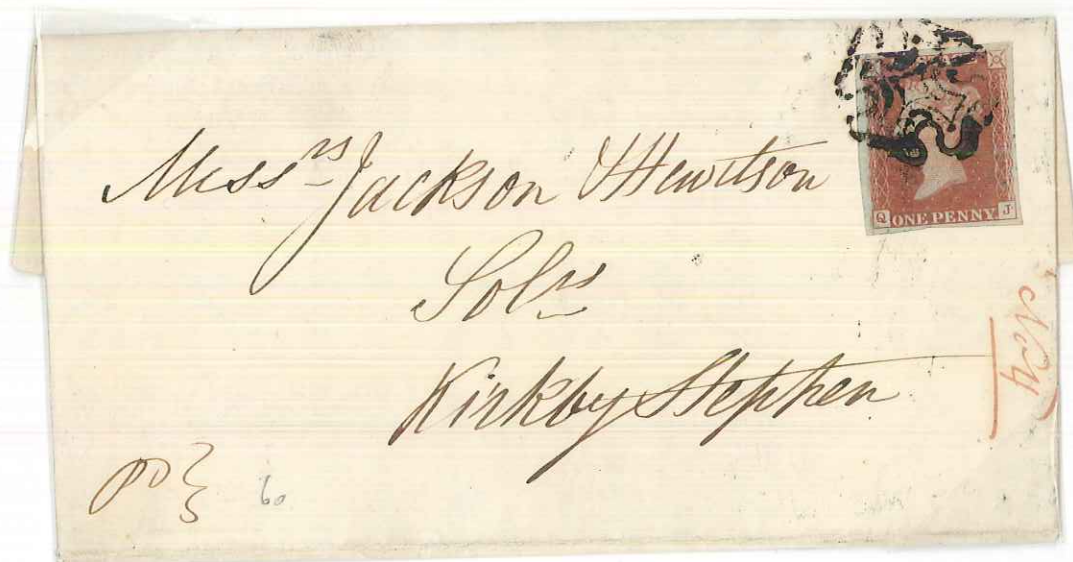 Mess^rs Jackson & Hewitson
Sol^rs
Kirkby Stephen
Q ONE PENNY J
60